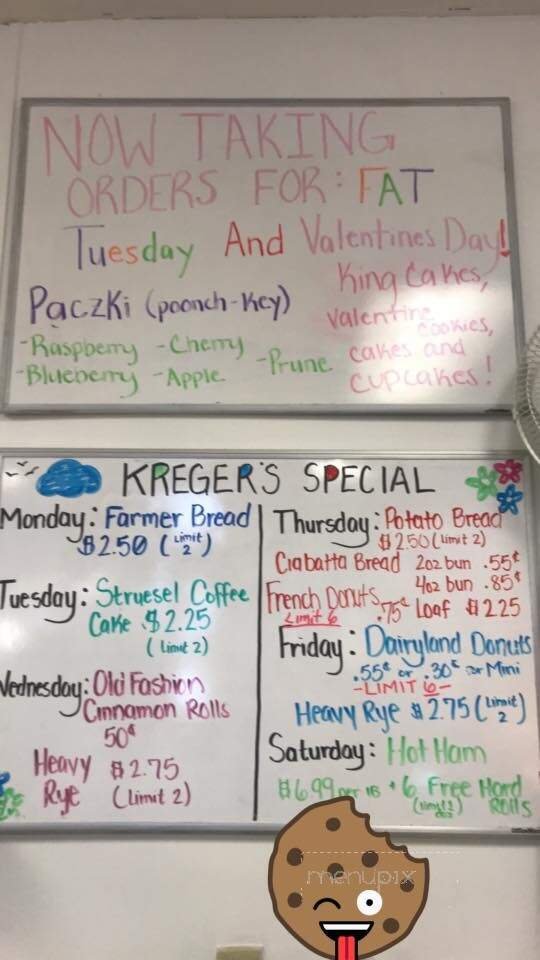 NOW TAKING
ORDERS FOR: FAT
Tuesday And Valentines Day!
Pączki (poonch-key)
-Raspberry -Cherry -Prune
-Blueberry -Apple
King Cakes,
Valentine
cookies,
cakes and
cupcakes!
KREGER'S SPECIAL
Monday: Farmer Bread
$2.50 (Limit 2)
Tuesday: Struesel Coffee
Cake $2.25
(Limit 2)
Wednesday: Old Fashion
Cinnamon Rolls
50¢
Heavy $2.75
Rye (Limit 2)
Thursday: Potato Bread
$2.50 (limit 2)
Ciabatta Bread 2oz bun .55¢
4oz bun .85¢
French Donuts .75¢ Loaf $2.25
Limit 6
Friday: Dairyland Donuts
.55¢ or .30¢ for Mini
-LIMIT 6-
Heavy Rye $2.75 (Limit 2)
Saturday: Hot Ham
$6.99 per lb + 6 Free Hard
Rolls
menupix